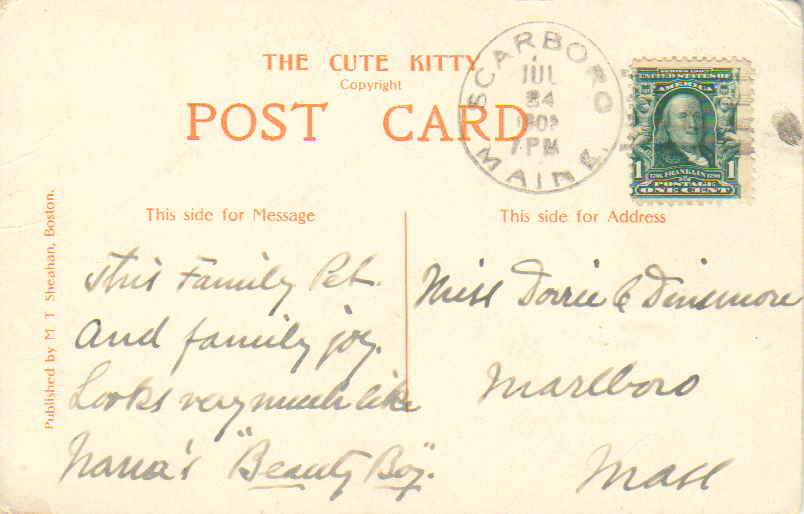 THE CUTE KITTY
Copyright
POST CARD
SCARBORO
JUL
24
7 PM
MAINE.
SERIES 1902
UNITED STATES OF
AMERICA
1 FRANKLIN 1
POSTAGE
ONE CENT
Published by M T Sheahan, Boston.
This side for Message
This Family Pet.
And family joy.
Looks very much like
Nana's "Beauty Boy".
This side for Address
Miss Dorrie C Dinsmore
Marlboro
Mass